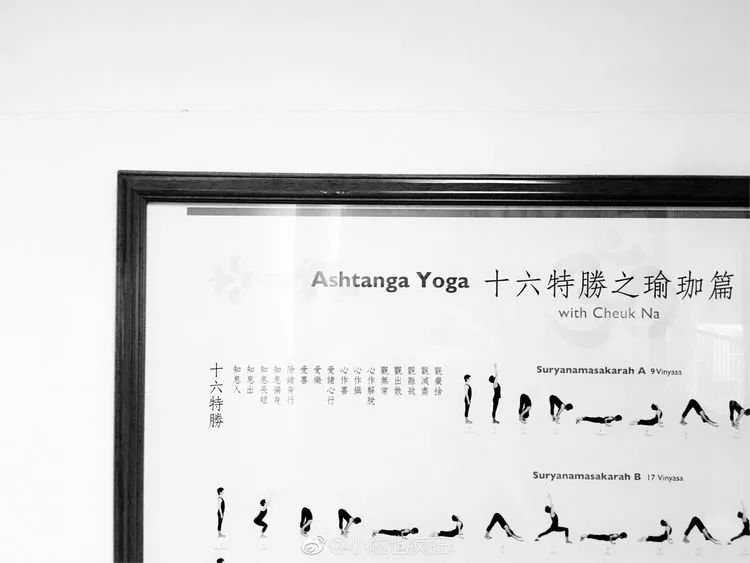 Ashtanga Yoga 十六特勝之瑜珈篇
with Cheuk Na
十六特勝
知息入
知息出
知息長短
知息徧身
除諸身行
愛喜
愛樂
愛諸心行
心作喜
心作攝
心作解脫
觀無常
觀出散
觀離欲
觀滅盡
觀棄捨
Suryanamasakarah A 9 Vinyasa
Suryanamasakarah B 17 Vinyasa